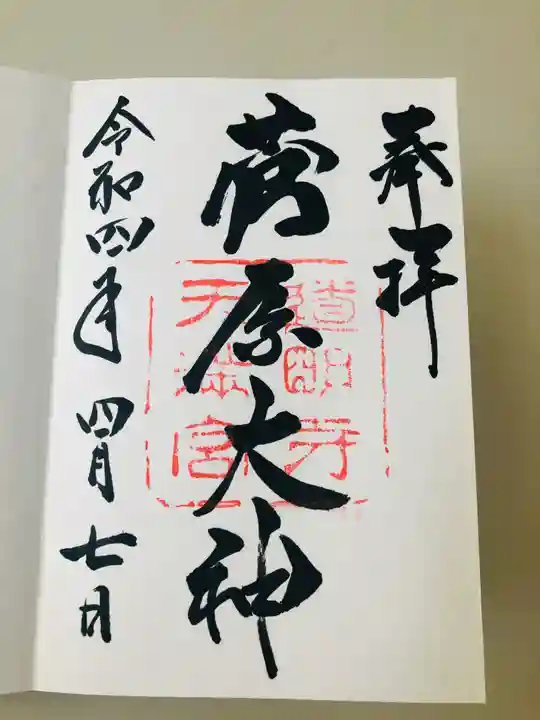 奉拝
菅原大神
道明寺
天満宮
令和四年 四月七日